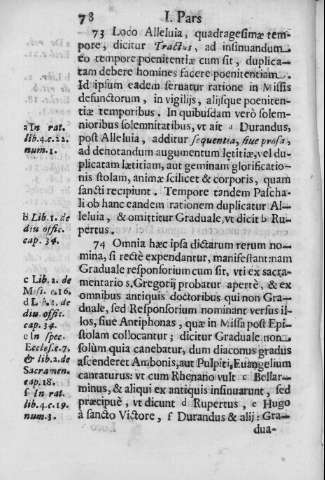 78 I. Pars
73 Loco Alleluia, quadragesimæ tem-
pore, dicitur Tractus, ad insinuandum
eo tempore pœnitentiæ cum sit, duplica-
tam debere homines facere pœnitentiam.
Id ipsium eadem seruatur ratione in Missis
defunctorum, in vigilijs, alijsque pœniten-
tiæ temporibus. In quibusdam verò solem-
nioribus solemnitatibus, vt ait a Durandus,
post Alleluia, additur sequentia, siue prosa,
ad denotandum augumentum lætitiæ, vel du-
plicatam lætitiam, aut geminam glorificatio-
nis stolam, animæ scilicet & corporis, quam
sancti recipiunt. Tempore tandem Pascha-
li ob hanc eandem rationem duplicatur Al-
leluia, & omittitur Graduale, vt dicit b Ru-
pertus.
74 Omnia hæc ipsa dictarum rerum no-
mina, si rectè expendantur, manifestant nam
Graduale responsorium cum sit, vti ex sacra-
mentario s. Gregorij probatur apertè, & ex
omnibus antiquis doctoribus qui non Gra-
duale, sed Responsorium nominant versus il-
los, siue Antiphonas, quæ in Missa post Epi-
stolam collocantur; dicitur Graduale non
solùm quia canebatur, dum diaconus gradus
ascenderet Ambonis, aut Pulpiti, Euangelium
cantaturus: vt cum Rhenano vult c Bellar-
minus, & aliqui ex antiquis insinuarunt, sed
præcipuè, vt dicunt d Rupertus, e Hugo
à sancto Victore, f Durandus & alij: Gra-
dua-
a In rat.
lib. 4. c. 22.
num. 1.
b Lib. 1. de
diu. offic.
cap. 34.
c Lib. 2. de
Miss. c. 16.
d L. b. 1. de
diu. offic.
cap. 34.
e In spec.
Eccles. c. 7.
& lib. 2. de
Sacramen.
cap. 18.
f in rat.
lib. 4. c. 19.
num. 3.